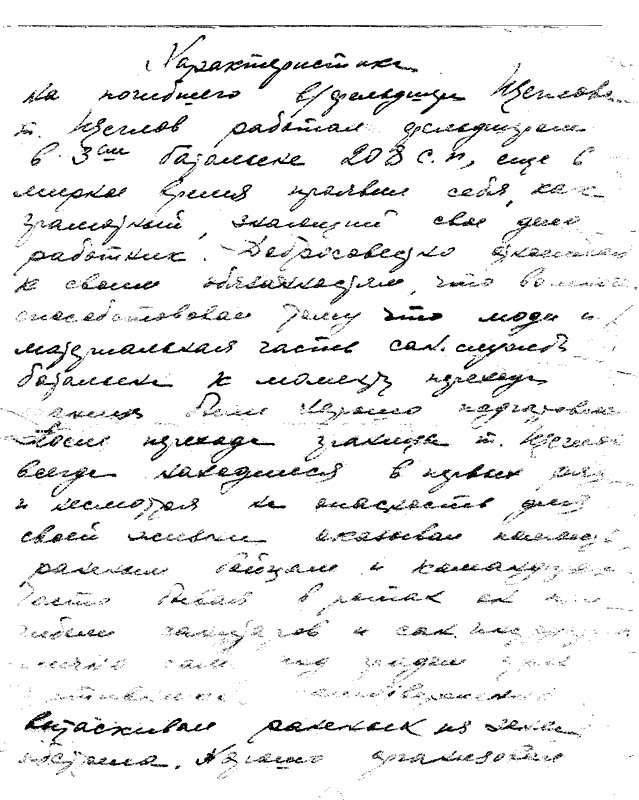 Характеристика
на погибшего в/фельдшера Щеглова
т. Щеглов работал фельдшером
в 3ем батальоне 208 с.п, еще в
мирное время проявил себя, как
грамотный, знающий свое дело
работник. Добросовестно относился
к своим обязанностям, что
способствовало тому что люди и
материальная часть сан. службы
батальона к моменту перехода
границы были хорошо подготовлены
После перехода границы т. Щеглов
всегда находился в первых рядах
и несмотря на опасность для
своей жизни оказывал помощь
раненым бойцам и командирам
Часто бывая в ротах он при
гибели санитаров и сан. инструкторов
сам под огнем
вытаскивал раненых из зоны
обстрела. Хорошо организовал